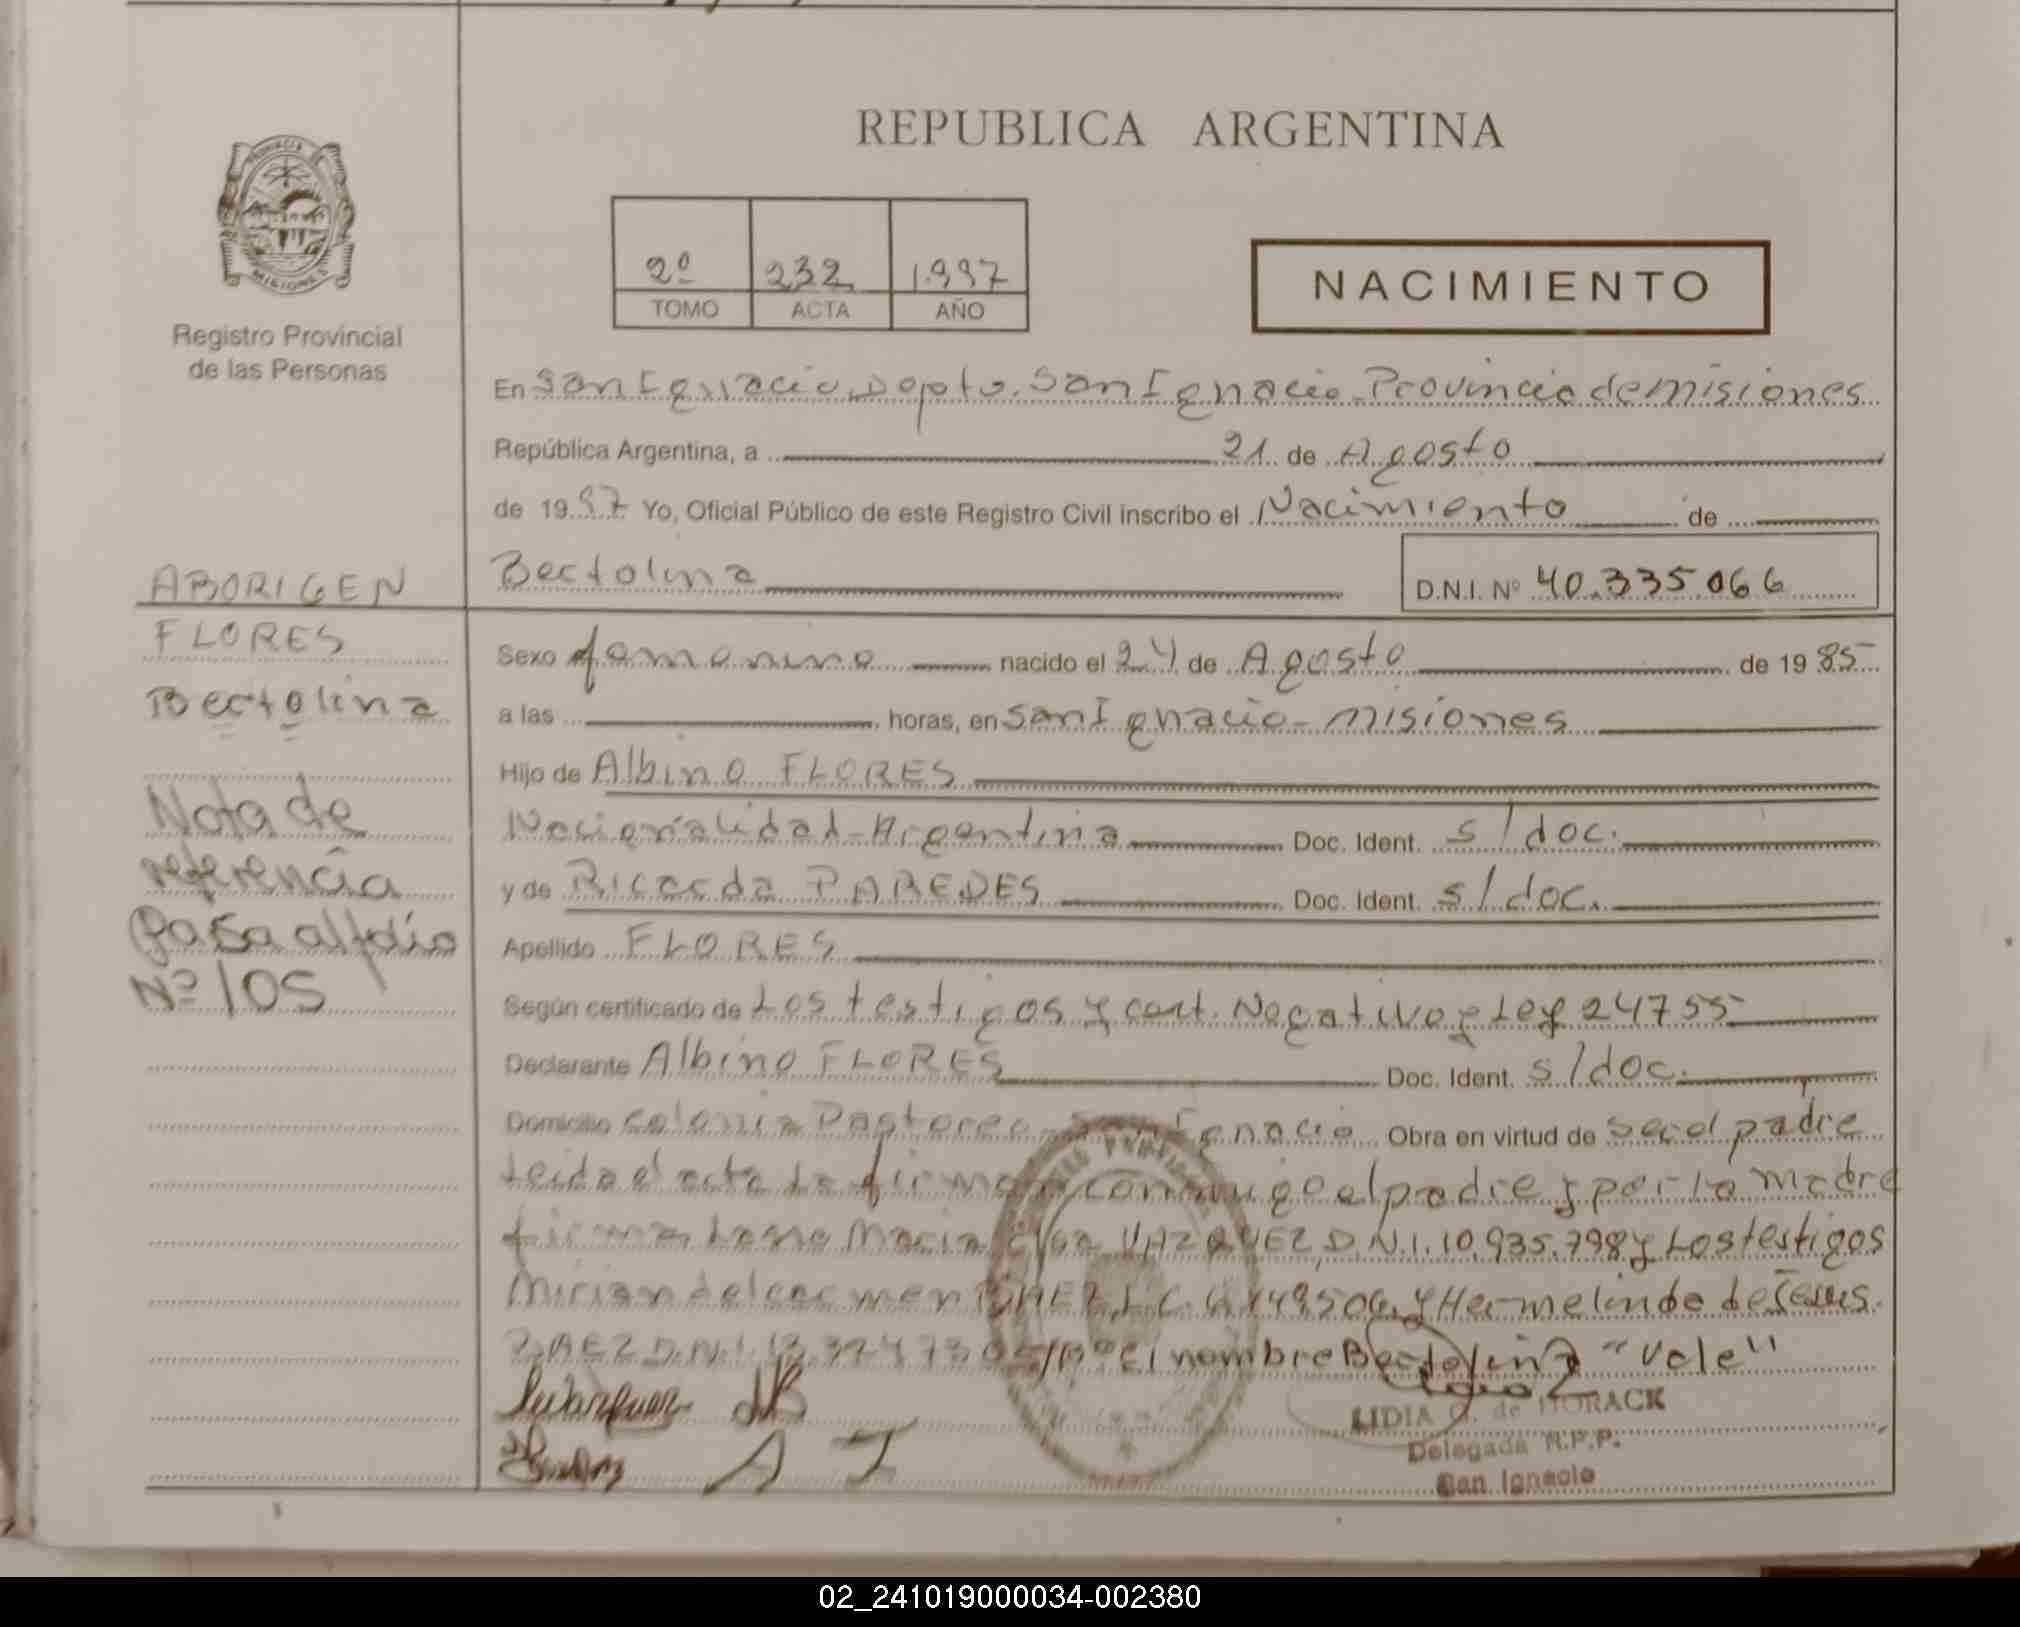 REPUBLICA ARGENTINA
PROVINCIA DE
MISIONES
Registro Provincial
de las Personas
2º 232 1.997
TOMO ACTA AÑO
NACIMIENTO
En San Ignacio, Dpto. San Ignacio. Provincia de misiones
República Argentina, a 21 de Agosto
de 1997 Yo, Oficial Público de este Registro Civil inscribo el Nacimiento de
Bectolina D.N.I. Nº 40.335.066
ABORIGEN
FLORES
Bectolina
Nota de
referencia
Pasa al folio
Nº 105
Sexo femenino nacido el 24 de Agosto de 1985
a las horas, en San Ignacio - Misiones
Hijo de Albino FLORES
Nacionalidad - Argentina Doc. Ident. s/doc.
y de Ricarda PAREDES Doc. Ident. s/doc.
Apellido FLORES
Según certificado de Los testigos y cert. Negativo y Ley 24755
Declarante Albino FLORES Doc. Ident. s/doc.
Domicilio colonia Pastoreo San Ignacio Obra en virtud de ser el padre
Leida el acta la firma conmigo el padre y por la madre
firma María VAZQUEZ, D.N.I. 10.935.798 y Los testigos
Mirian del carmen BAEZ L.C. y Hermelinda de Jesus
BAEZ D.N.I. El nombre Bectolina "Vale"
LIDIA G. de HORACK
Delegada R.P.P.
San Ignacio
02_241019000034-002380